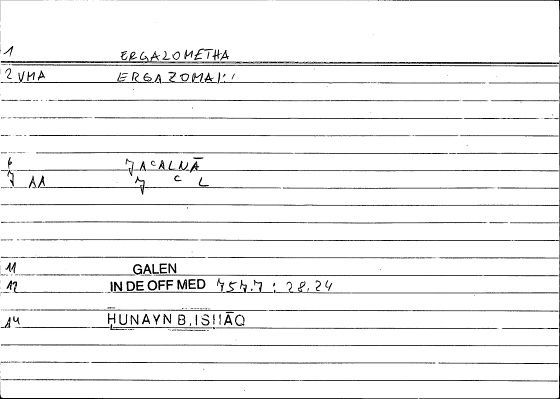 1 ERGAZOMETHA
2 VMA ERGAZOMAI
6 JAᶜALNĀ
7 AA J ᶜ L
11 GALEN
12 IN DE OFF MED 757.7 : 28.24
14 ḤUNAYN B. ISḤĀQ